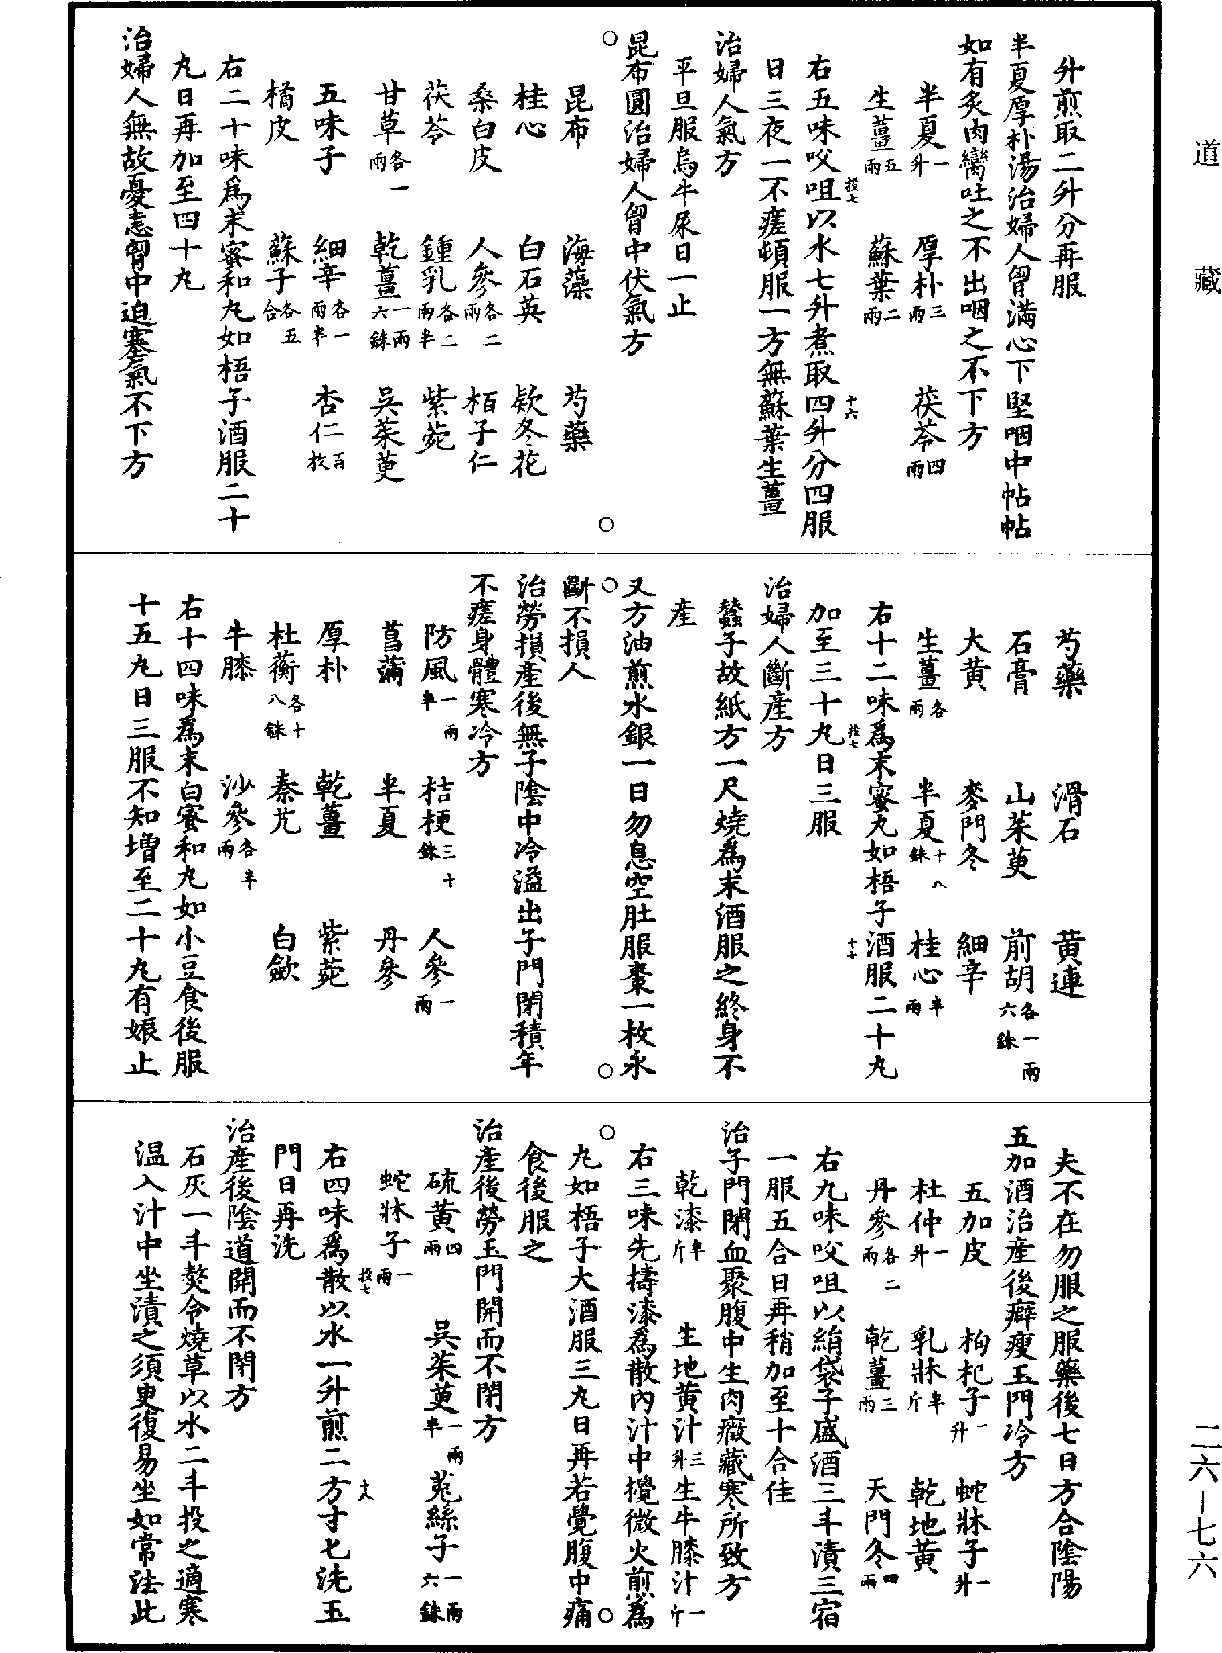 道藏
升煎取二升分再服
半夏厚朴湯治婦人胷滿心下堅咽中帖帖
如有炙肉臠吐之不出咽之不下方
半夏一升　厚朴三兩　茯苓四兩
生薑五兩　蘇葉二兩
右五味㕮咀以水七升煮取四升分四服
投七　十六
日三夜一不瘥頓服一方無蘇葉生薑
治婦人氣方
平旦服烏牛尿日一止
昆布圓治婦人胷中伏氣方
昆布　海藻　芍藥
桂心　白石英　款冬花
桑白皮　人參各二兩　栢子仁
茯苓　鍾乳各二兩半　紫菀
甘草各一兩　乾薑一兩六銖　吳茱萸
五味子　細辛各一兩半　杏仁百枚
橘皮　蘇子各五合
右二十味爲末蜜和丸如梧子酒服二十
丸日再加至四十丸
治婦人無故憂恚胷中迫塞氣不下方
芍藥　滑石　黃連
石膏　山茱萸　前胡各一兩六銖
大黃　麥門冬　細辛
生薑各一兩　半夏十八銖　桂心半兩
右十二味爲末蜜丸如梧子酒服二十丸
加至三十丸日三服
投七
治婦人斷産方
蠶子故紙方一尺燒爲末酒服之終身不
産
又方油煎水銀一日勿息空肚服棗一枚永
斷不損人
治勞損産後無子陰中冷溢出子門閉積年
不瘥身體寒冷方
防風一兩半　桔梗三十銖　人參一兩
菖蒲　半夏　丹參
厚朴　乾薑　紫菀
杜蘅各十八銖　秦艽　白歛
牛膝　沙參各半兩
右十四味爲末白蜜和丸如小豆食後服
十五丸日三服不知增至二十丸有娠止
夫不在勿服之服藥後七日方合陰陽
五加酒治産後癖瘦玉門冷方
五加皮　枸杞子一升　蛇牀子一升
杜仲一升　乳牀半斤　乾地黃
丹參各二兩　乾薑三兩　天門冬四兩
右九味㕮咀以絹袋子盛酒三斗漬三宿
一服五合日再稍加至十合佳
治子門閉血聚腹中生肉癥藏寒所致方
乾漆半斤　生地黃汁三升　生牛膝汁一斤
右三味先擣漆爲散內汁中攪微火煎爲
丸如梧子大酒服三丸日再若覺腹中痛
食後服之
治産後勞玉門開而不閉方
硫黃四兩　吳茱萸一兩半　菟絲子一兩六銖
蛇牀子一兩
右四味爲散以水一升煎二方寸匕洗玉
投七
門日再洗
治産後陰道開而不閉方
石灰一斗熬令燒草以水二斗投之適寒
溫入汁中坐漬之須臾復易坐如常法此
二六—七六